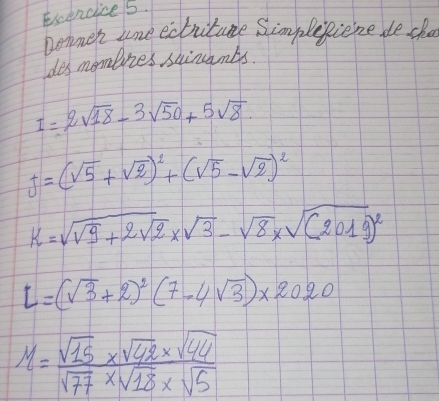 Exercice 5.
Donner une écriture Simplifiée de
des nombres suivants.
I = 2√18 - 3√50 + 5√8.
J = (√5 + √2)² + (√5 - √2)²
K = √(√9 + 2√2) × √3 - √8 × √(2019)²
L = (√3 + 2)² (7 - 4√3) × 2020
M = (√15 × √42 × √44) / (√77 × √18 × √5)